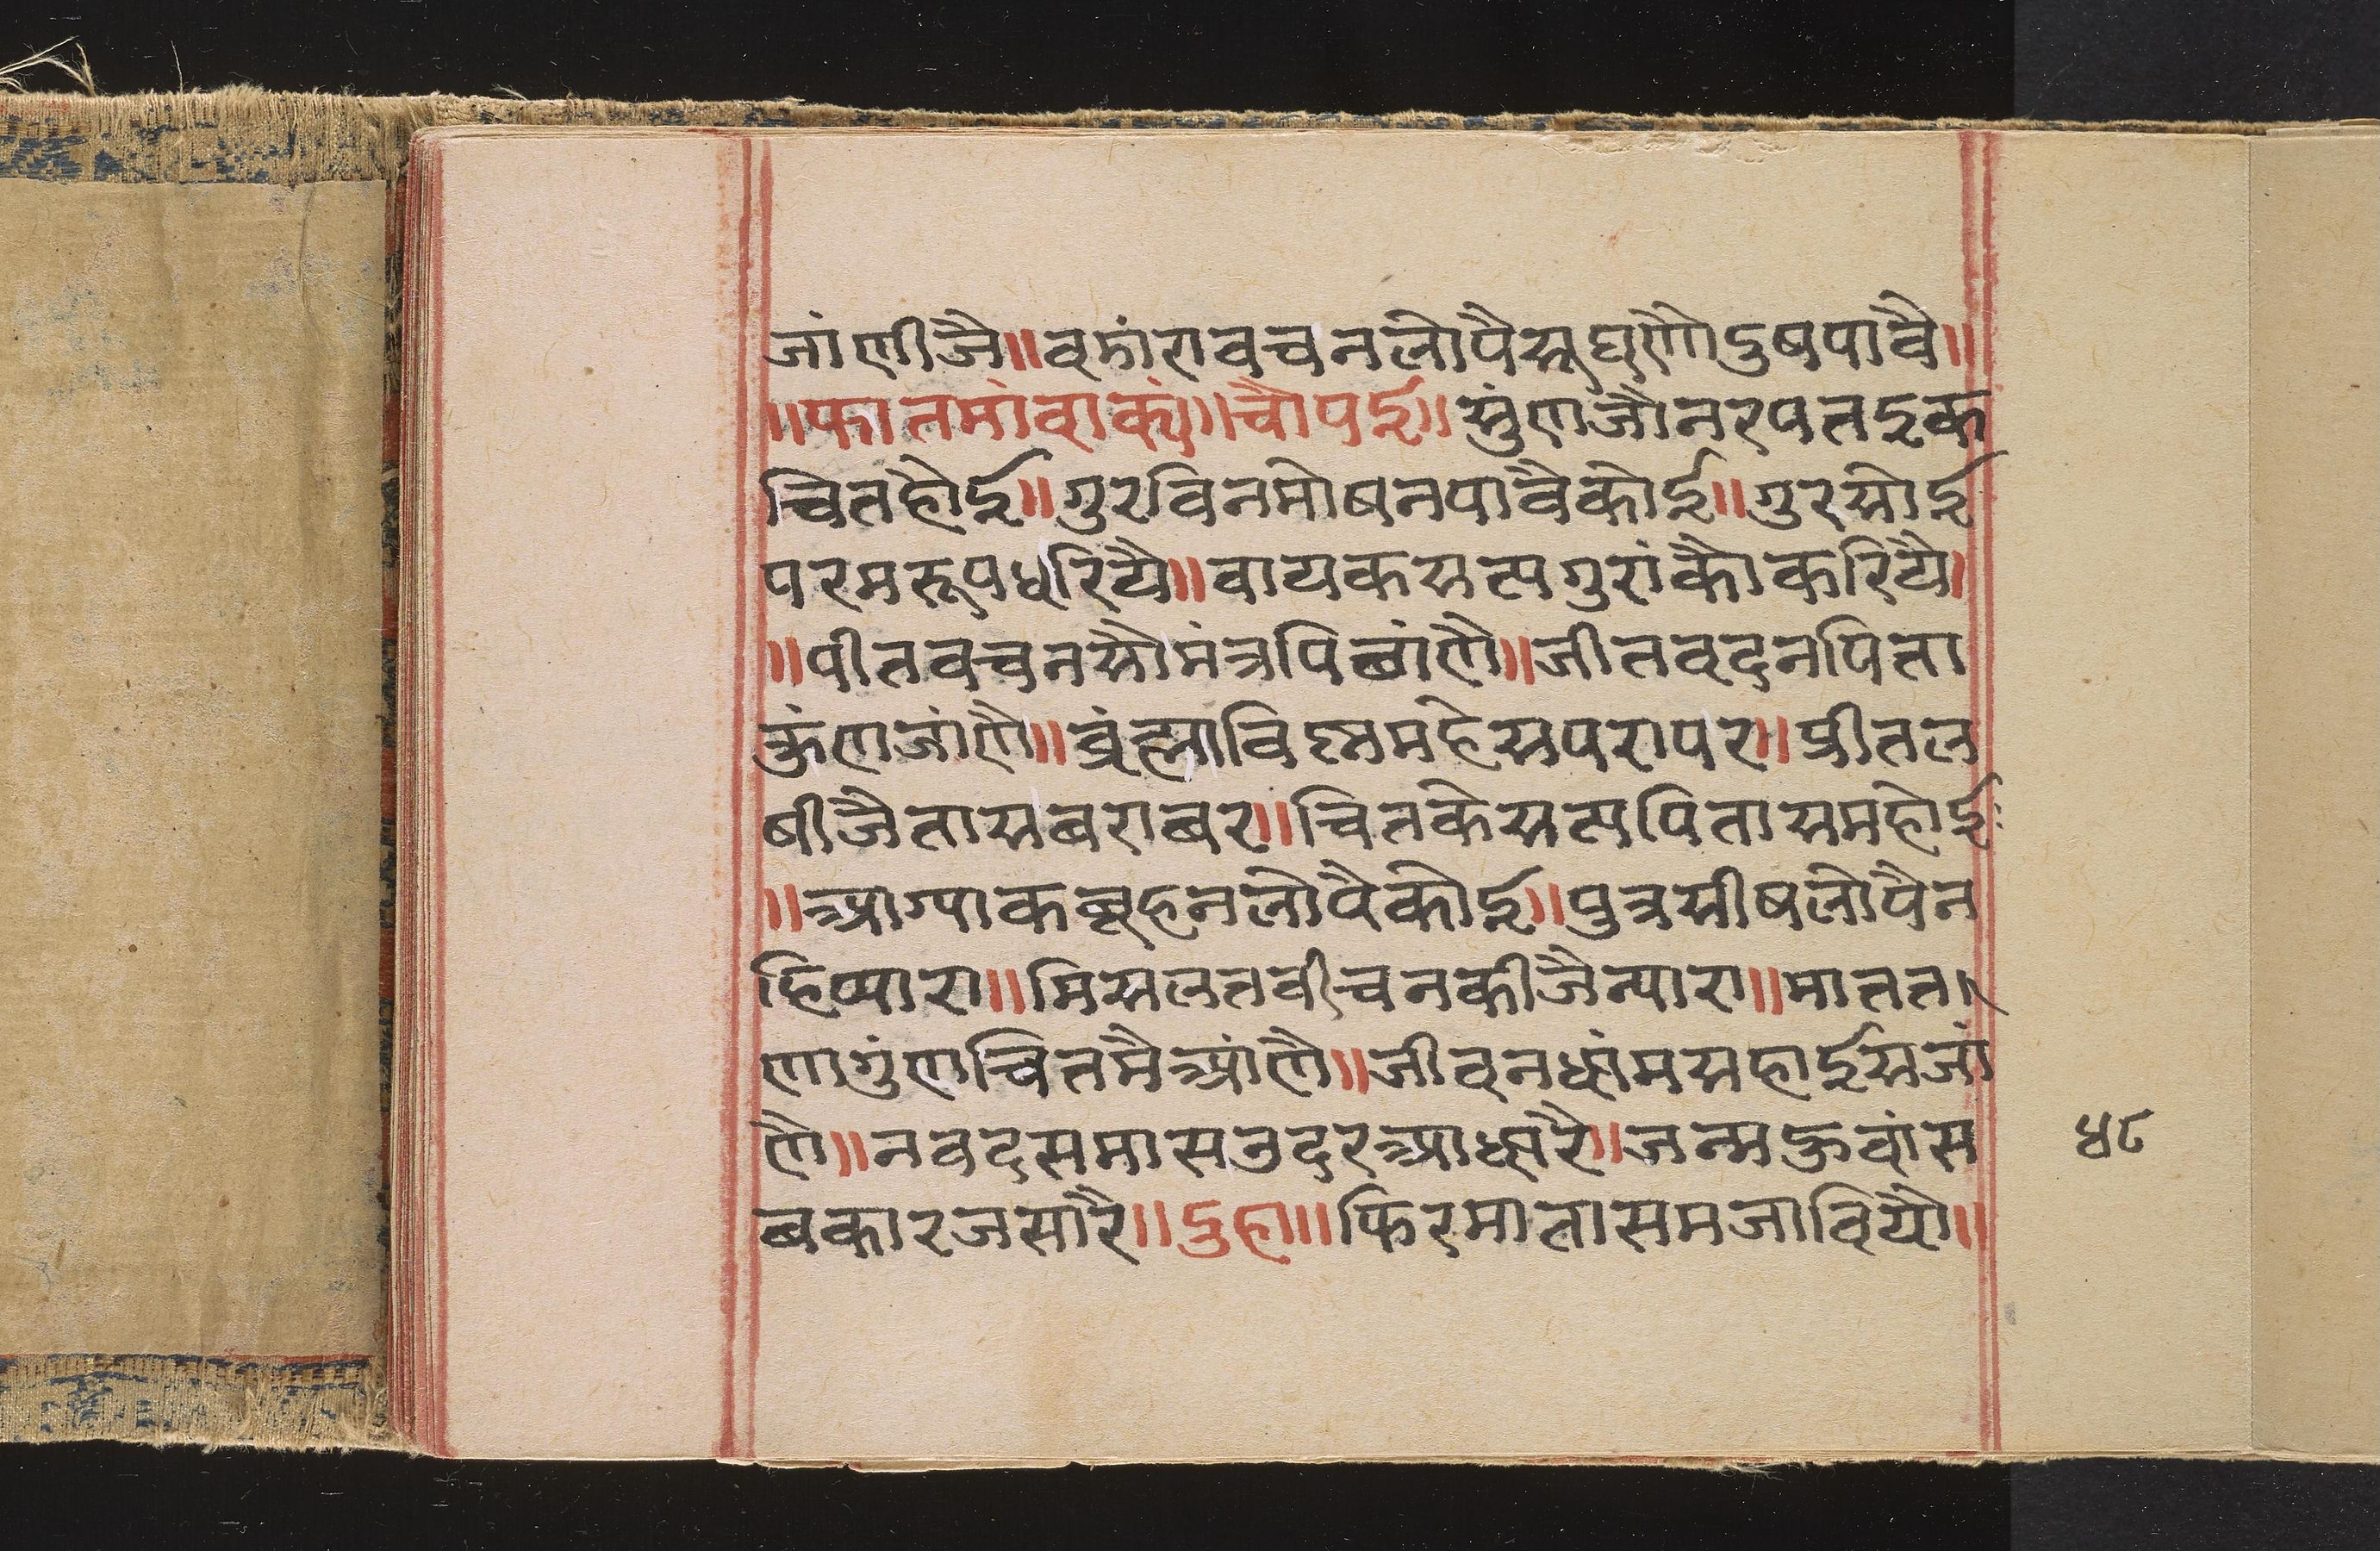 जांणीजै॥वडांरावचनलोपैसूघणौदुषपावै॥
॥फातमांवाक्यं॥चौपई॥सुंणजौनरपतइक
चितहोई॥गुरविनमोषनपावैकोई॥गुरसोई
परमरूपधरियै॥वायकसत्यगुरांकौकरियै।
॥पीतवचनसोमंत्रपिछांणै॥जीतवदनपिता
कुंणजांणै॥ब्रंह्माविष्नमहेसपरापर॥प्रीतल
षीजैतासबराबर॥चितकेसत्यपितासमहोई
॥आग्याकबूहनलोपैकोई॥पुत्रसीषलोपैन
हिप्यारा॥मिसलतवीचनकीजैन्यारा॥मातत
णागुंणचितमैआंणै॥जीवनधांमसहाईसजां
णै॥नवदसमासउदरआधारै॥जन्मऊवांस
बकारजसारै॥दुहा॥फिरमातासमजावियौ॥
५८